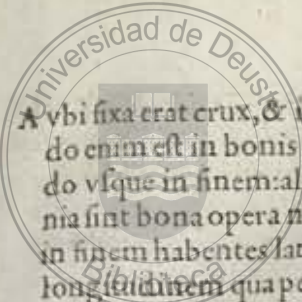 Universidad de Deusto
A vbi fixa erat crux, & i
do enim est in bonis
do vsque in finem: al
nia sint bona opera n
in finem habentes lat
longitudinem qua pe
Biblioteca